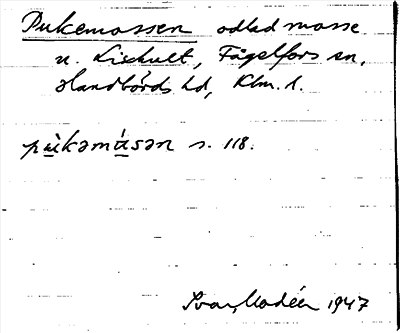 Pukemossen odlad mosse
n. Lixhult, Fågelfors sn,
Handbörds hd, Klm. l.
pùkəmåsən s. 118.
Ivar Modéer 1947